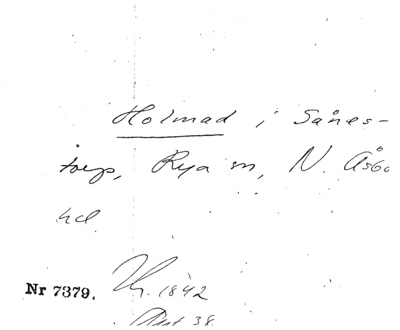 Holmad i Sånes-
torp, Rya sn, N. Åsbo
hd.
Nr 7379. 1842
38.